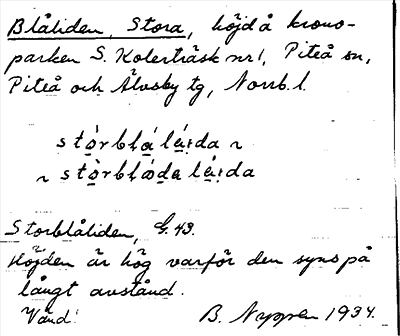 Blåliden, Stora, höjd å krono-
parken S. Kolerträsk nr 1, Piteå sn,
Piteå och Älvsby tg, Norrb. l.
stórblá léi:da ~
~ stórblåda léi:da
Storblåliden, G. 43.
Höjden är hög varför den syns på
långt avstånd.
Vänd! B. Nyppen 1934.